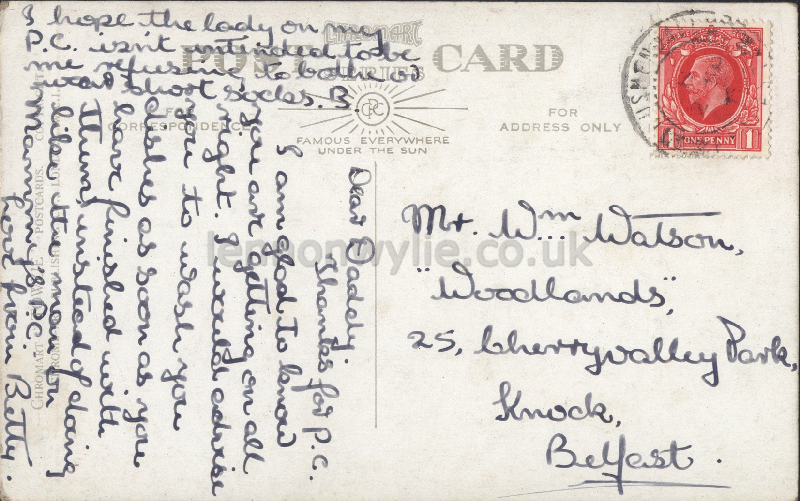 I hope the lady on my
P.C. isn't intended to be
me refusing to bother or
wear short socks. B.
CARD
FOR
CORRESPONDENCE
FAMOUS EVERYWHERE
UNDER THE SUN
CPC
FOR
ADDRESS ONLY
ONE PENNY
1
Dear Daddy,
Thanks for P.C.
I am glad to know
you are getting on all
right. I would advise
you to wash you
dishes as soon as you
have finished with
them, instead of doing
like the man on
Mammy's P.C.
Love from Betty.
Mr. Wm Watson,
"Woodlands",
25, Cherryvalley Park,
Knock,
Belfast.
lennonwylie.co.uk